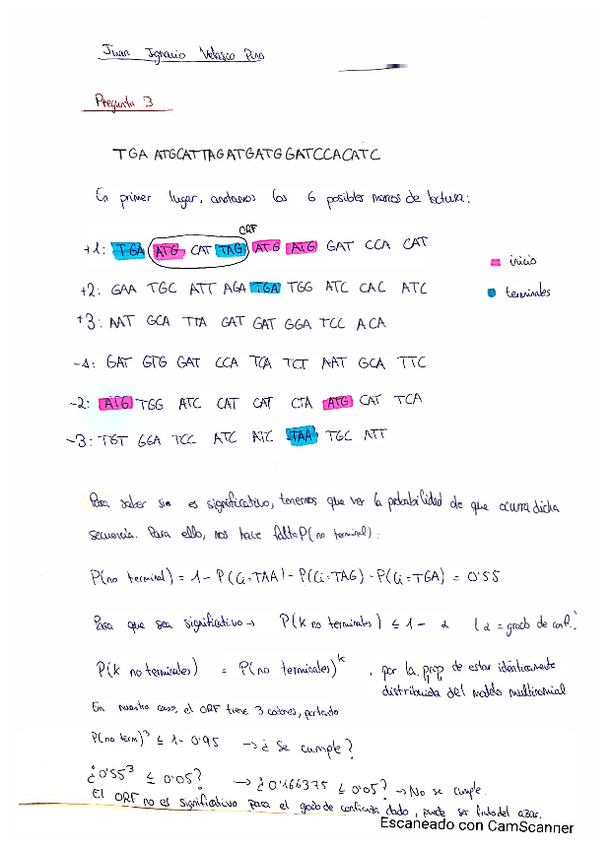 Juan Ignacio Velasco Pino
Pregunta 3
TGA ATGCATTAGATGATGGATCCACATC
En primer lugar, anotamos los 6 posibles marcos de lectura:
ORF
+1: TGA ATG CAT TAG ATG ATG GAT CCA CAT
inicio
+2: GAA TGC ATT AGA TGA TGG ATC CAC ATC
terminales
+3: AAT GCA TTA GAT GAT GGA TCC ACA
-1: GAT GTG GAT CCA TCA TCT AAT GCA TTC
-2: ATG TGG ATC CAT CAT CTA ATG CAT TCA
-3: TGT GGA TCC ATC ATC TAA TGC ATT
Para saber si es significativo, tenemos que ver la probabilidad de que ocurra dicha
secuencia. Para ello, nos hace falta P(no terminal):
P(no terminal) = 1 - P(Ci=TAA) - P(Ci=TAG) - P(Ci=TGA) = 0'55
Para que sea significativo → P(k no terminales) ≤ 1 - α (α = grado de conf.)
P(k no terminales) = P(no terminales)^k , por la prop de estar idénticamente
distribuida del modelo multinomial
En nuestro caso, el ORF tiene 3 codones, por tanto
P(no term)³ ≤ 1 - 0'95 → ¿Se cumple?
¿0'55³ ≤ 0'05? → ¿0'166375 ≤ 0'05? → No se cumple.
El ORF no es significativo para el grado de confianza dado, puede ser fruto del azar.
Escaneado con CamScanner